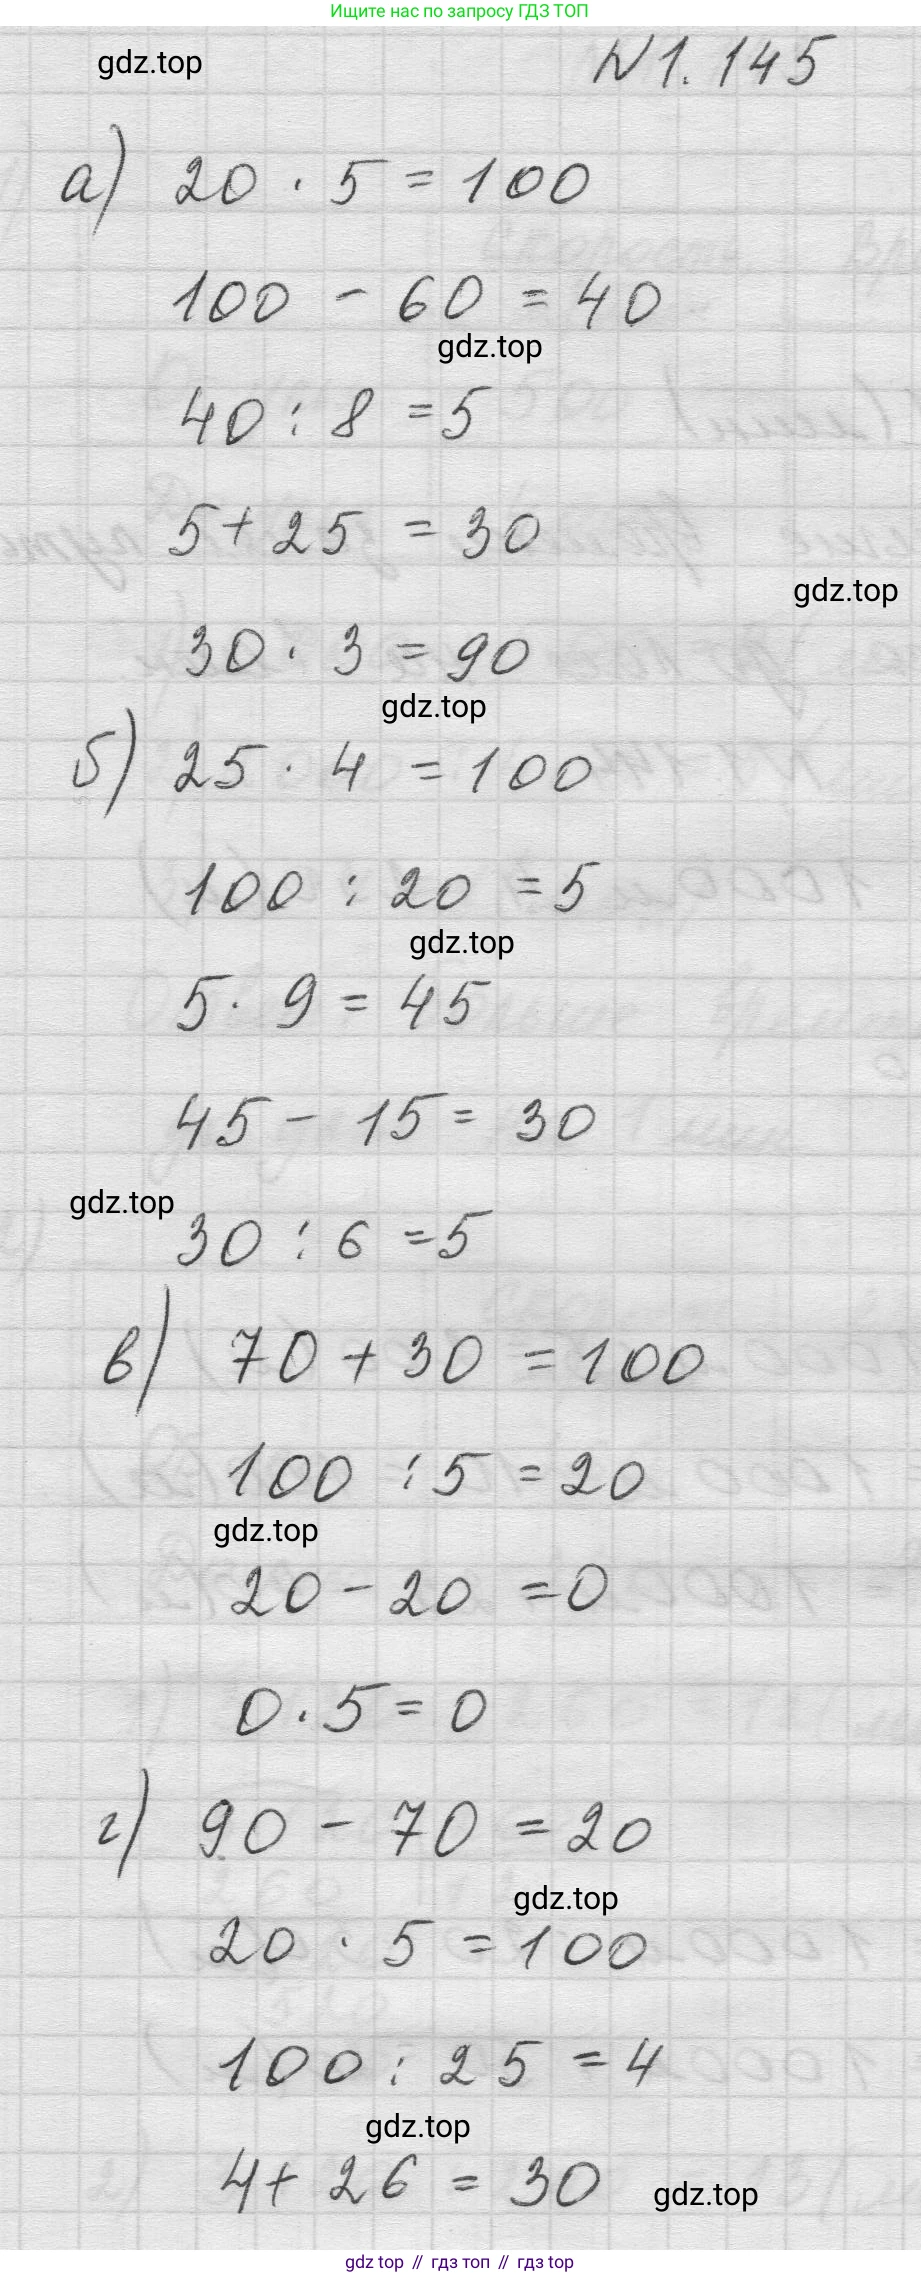 Ищите нас по запросу ГДЗ ТОП
gdz.top
N 1. 145
а) 20 · 5 = 100
100 - 60 = 40
gdz.top
40 : 8 = 5
5 + 25 = 30
gdz.top
30 · 3 = 90
gdz.top
б) 25 · 4 = 100
100 : 20 = 5
gdz.top
5 · 9 = 45
45 - 15 = 30
gdz.top
30 : 6 = 5
в) 70 + 30 = 100
100 : 5 = 20
gdz.top
20 - 20 = 0
0 · 5 = 0
г) 90 - 70 = 20
gdz.top
20 · 5 = 100
100 : 25 = 4
gdz.top
4 + 26 = 30
gdz.top
gdz top // гдз топ // gdz top